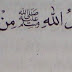 لُ اللهِ ﷺ مِنْ